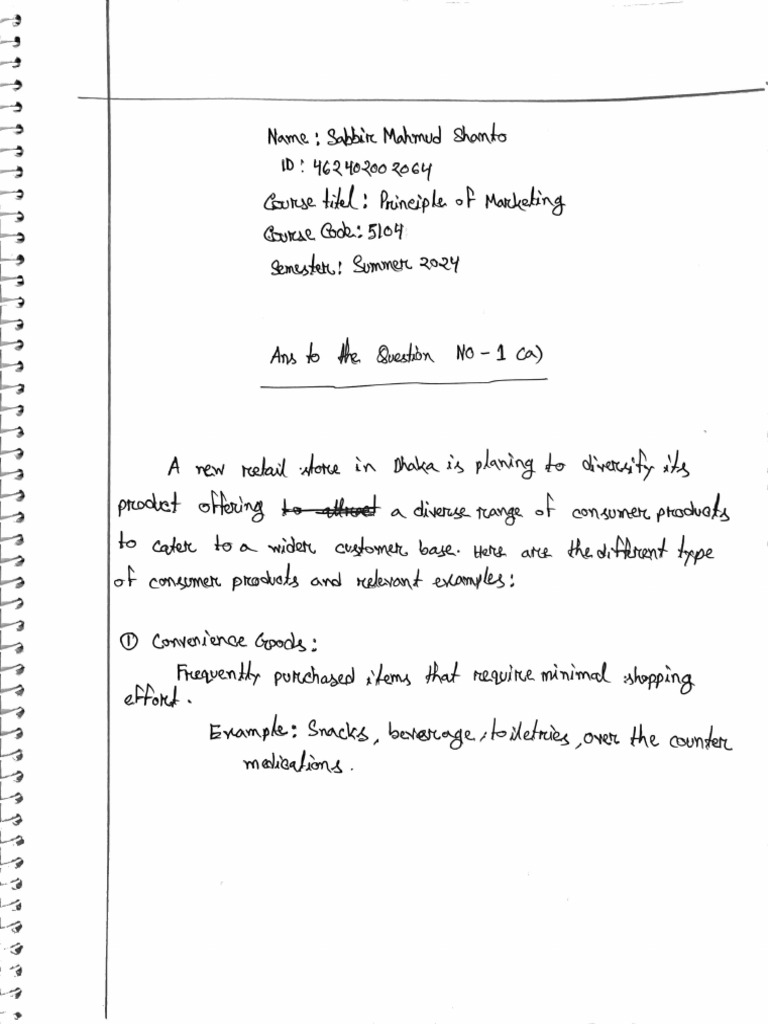 Name : Sabbir Mahmud Shanto
ID : 46240200 2064
Course titel : Principle of Marketing
Course Code : 5104
Semester : Summer 2024
Ans to the Question NO - 1 (a)
A new retail store in Dhaka is planing to diversify its
product offering to attract a diverse range of consumer products
to cater to a wider customer base. Here are the different type
of consumer products and relevant examples :
① Convenience Goods :
Frequently purchased items that require minimal shopping
effort.
Example : Snacks, beverage, toiletries, over the counter
medications.